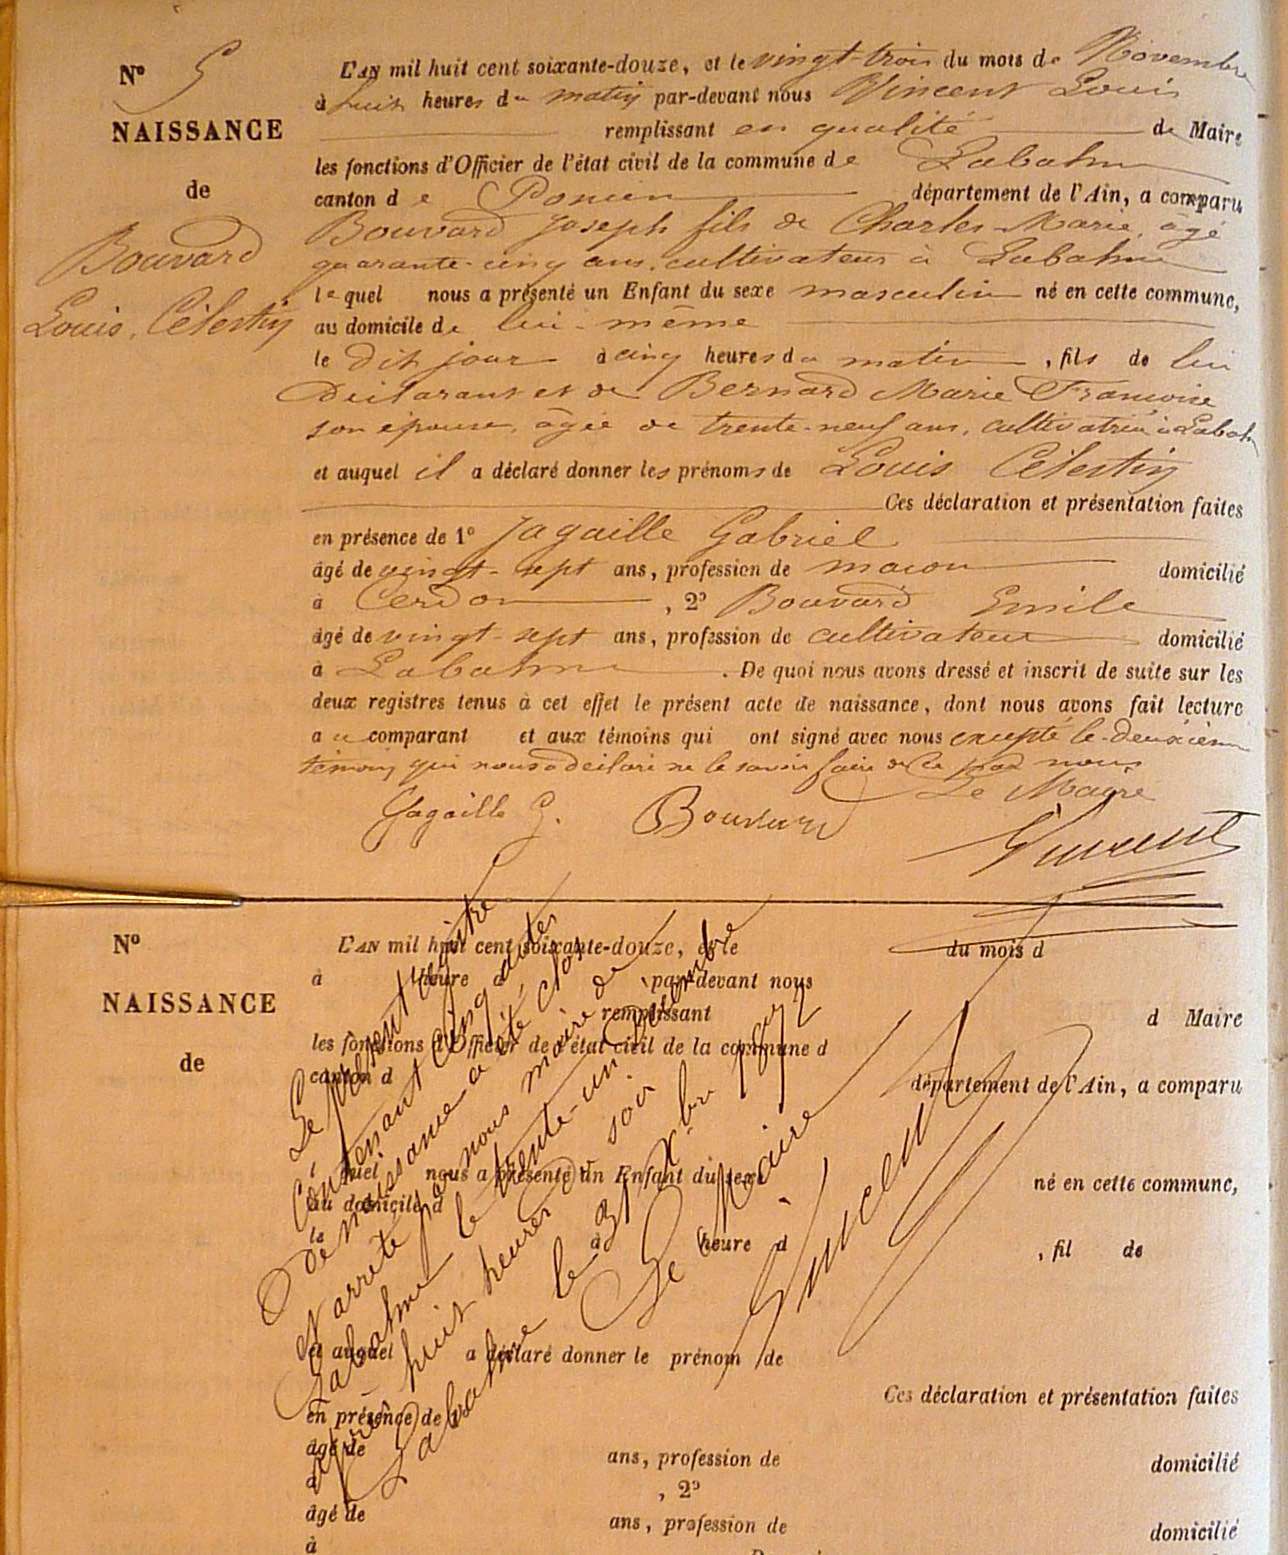 Nº 5
NAISSANCE
de
Bouvard
Louis, Célestin
L'AN mil huit cent soixante-douze, et le vingt-trois du mois de Novembre
à huit heures du matin par-devant nous Vincent Louis
remplissant en qualité de Maire
les fonctions d'Officier de l'état civil de la commune de Labalme
canton de Poncin département de l'Ain, a comparu
Bouvard Joseph fils de Charles Marie, âgé
quarante-cinq ans, cultivateur à Labalme
lequel nous a présenté un Enfant du sexe masculin né en cette commune,
au domicile de lui-même
le dit jour à cinq heures du matin, fils de lui
déclarant et de Bernard Marie Françoise
son épouse, âgée de trente-neuf ans, cultivatrice à Labalme
et auquel il a déclaré donner les prénoms de Louis Célestin
Ces déclaration et présentation faites
en présence de 1º Jagaille Gabriel
âgé de vingt-sept ans, profession de maçon domicilié
à Cerdon, 2º Bouvard Emile
âgé de vingt-sept ans, profession de cultivateur domicilié
à Labalme. De quoi nous avons dressé et inscrit de suite sur les
deux registres tenus à cet effet le présent acte de naissance, dont nous avons fait lecture
au comparant et aux témoins qui ont signé avec nous excepté le deuxième
témoin qui nous a déclaré ne le savoir faire de ce par nous
Le Maire
Jagaille G. Bouvard Vincent
Nº
NAISSANCE
de
L'AN mil huit cent soixante-douze, et le du mois d
à heure d par-devant nous
remplissant d Maire
les fonctions d'Officier de l'état civil de la commune d
canton d département de l'Ain, a comparu
l quel nous a présenté un Enfant du sexe né en cette commune,
au domicile d
le à heure d , fil de
et auquel a déclaré donner le prénom de
Ces déclaration et présentation faites
en présence de
âgé de ans, profession de domicilié
à , 2º
âgé de ans, profession de domicilié
à
Le présent registre
contenant cinq actes
de naissance a été clos
et arrêté par nous maire de
Labalme le trente-un Décembre
huit heures du soir
Labalme le 31 Xbre 1872
Le Maire
Vincent